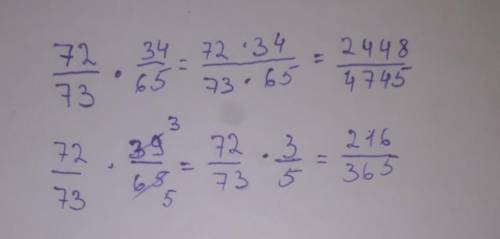 72/73 · 34/65 = 72 · 34/73 · 65 = 2448/4745
72/73 · 39/65 3 5 = 72/73 · 3/5 = 216/365